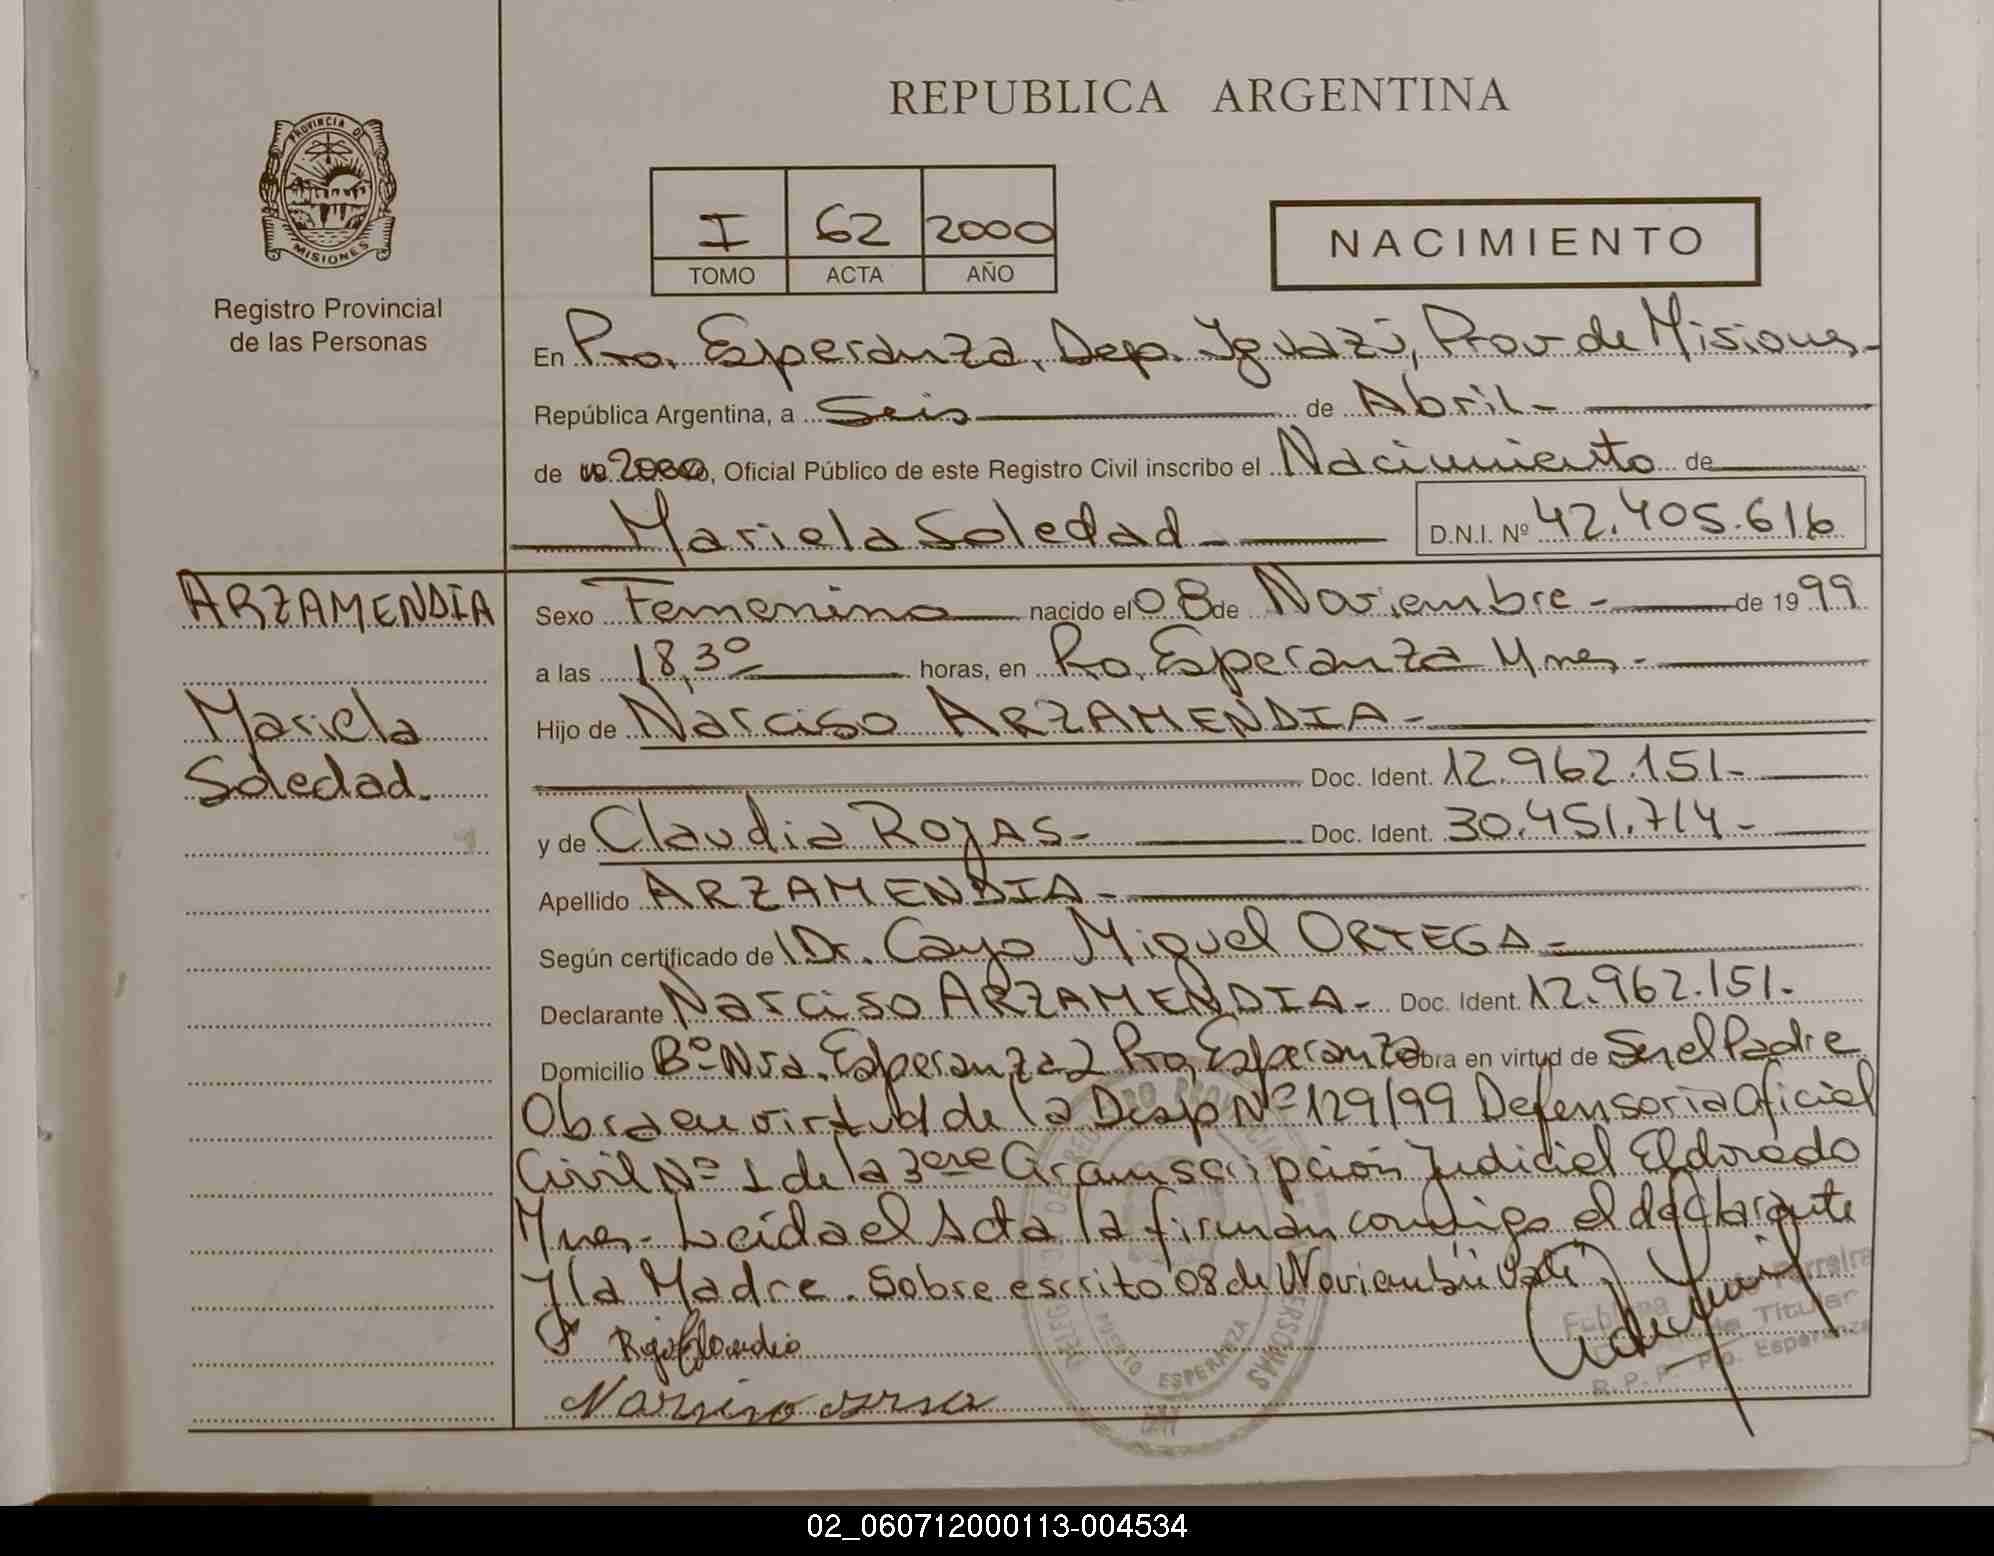 REPUBLICA ARGENTINA
PROVINCIA DE
MISIONES
Registro Provincial
de las Personas
I 62 2000
TOMO ACTA AÑO
NACIMIENTO
En Pto. Esperanza, Dep. Iguazú, Prov de Misiones.-
República Argentina, a Seis de Abril.-
de 2000, Oficial Público de este Registro Civil inscribo el Nacimiento de
Mariela Soledad.-
D.N.I. Nº 42.405.616
ARZAMENDIA
Mariela
Soledad.
Sexo Femenino nacido el 08 de Noviembre.- de 1999
a las 18,30 horas, en Pto. Esperanza Mnes.-
Hijo de Narciso ARZAMENDIA.-
Doc. Ident. 12.962.151.-
y de Claudia ROJAS.- Doc. Ident. 30.451.714.-
Apellido ARZAMENDIA.-
Según certificado de l Dr. Cayo Miguel ORTEGA.-
Declarante Narciso ARZAMENDIA.- Doc. Ident. 12.962.151.-
Domicilio Bº Nra. Esperanza 2 Pto. Esperanza obra en virtud de Ser el Padre
Obra en virtud de la Disp Nº 129/99 Defensoria Oficial
Civil Nº 1 de la 3ere Circunscripción Judicial Eldorado
Mnes.- Leida el Acta la firman conmigo el declarante
y la Madre. Sobre escrito 08 de Noviembre Vale
Rojas Claudia
Narciso arsa
PUERTO ESPERANZA
Titular
R.P.P. Pto. Esperanza
02_060712000113-004534